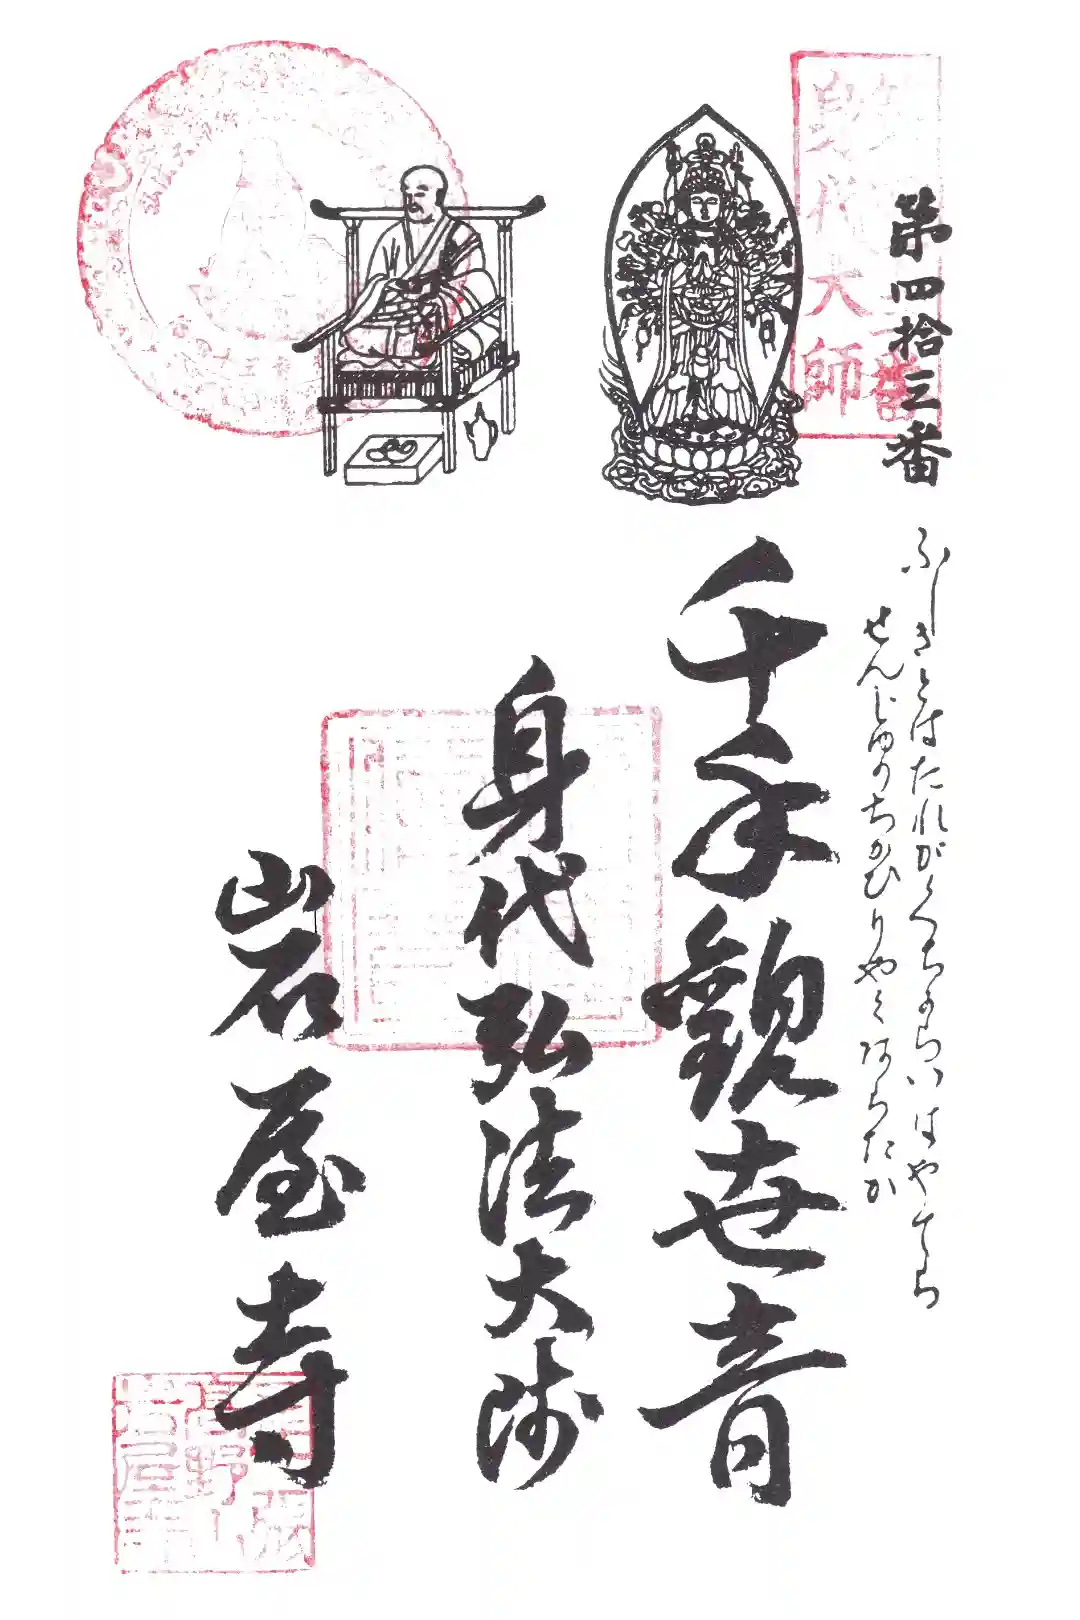 第四拾三番
ふしきとはたれが いはやてら
せんじゆのちかひりやくあらたか
千手観世音
身代弘法大師
岩屋寺
身代大師
尾張
高野山
岩屋寺